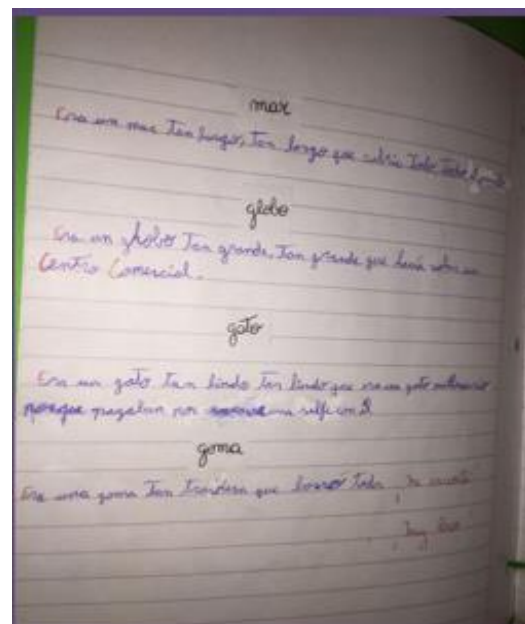 mar
Era un mar Tan largo, Tan largo que cubría Todo, Todo el
globo
Era un globo Tan grande, Tan grande que hacía sobre un
Centro Comercial.
gato
Era un gato Tan lindo Tan lindo que era un gato
porque pagaban por una selfie con él
goma
Era una goma Tan Traviesa que borró Todo
Muy bien